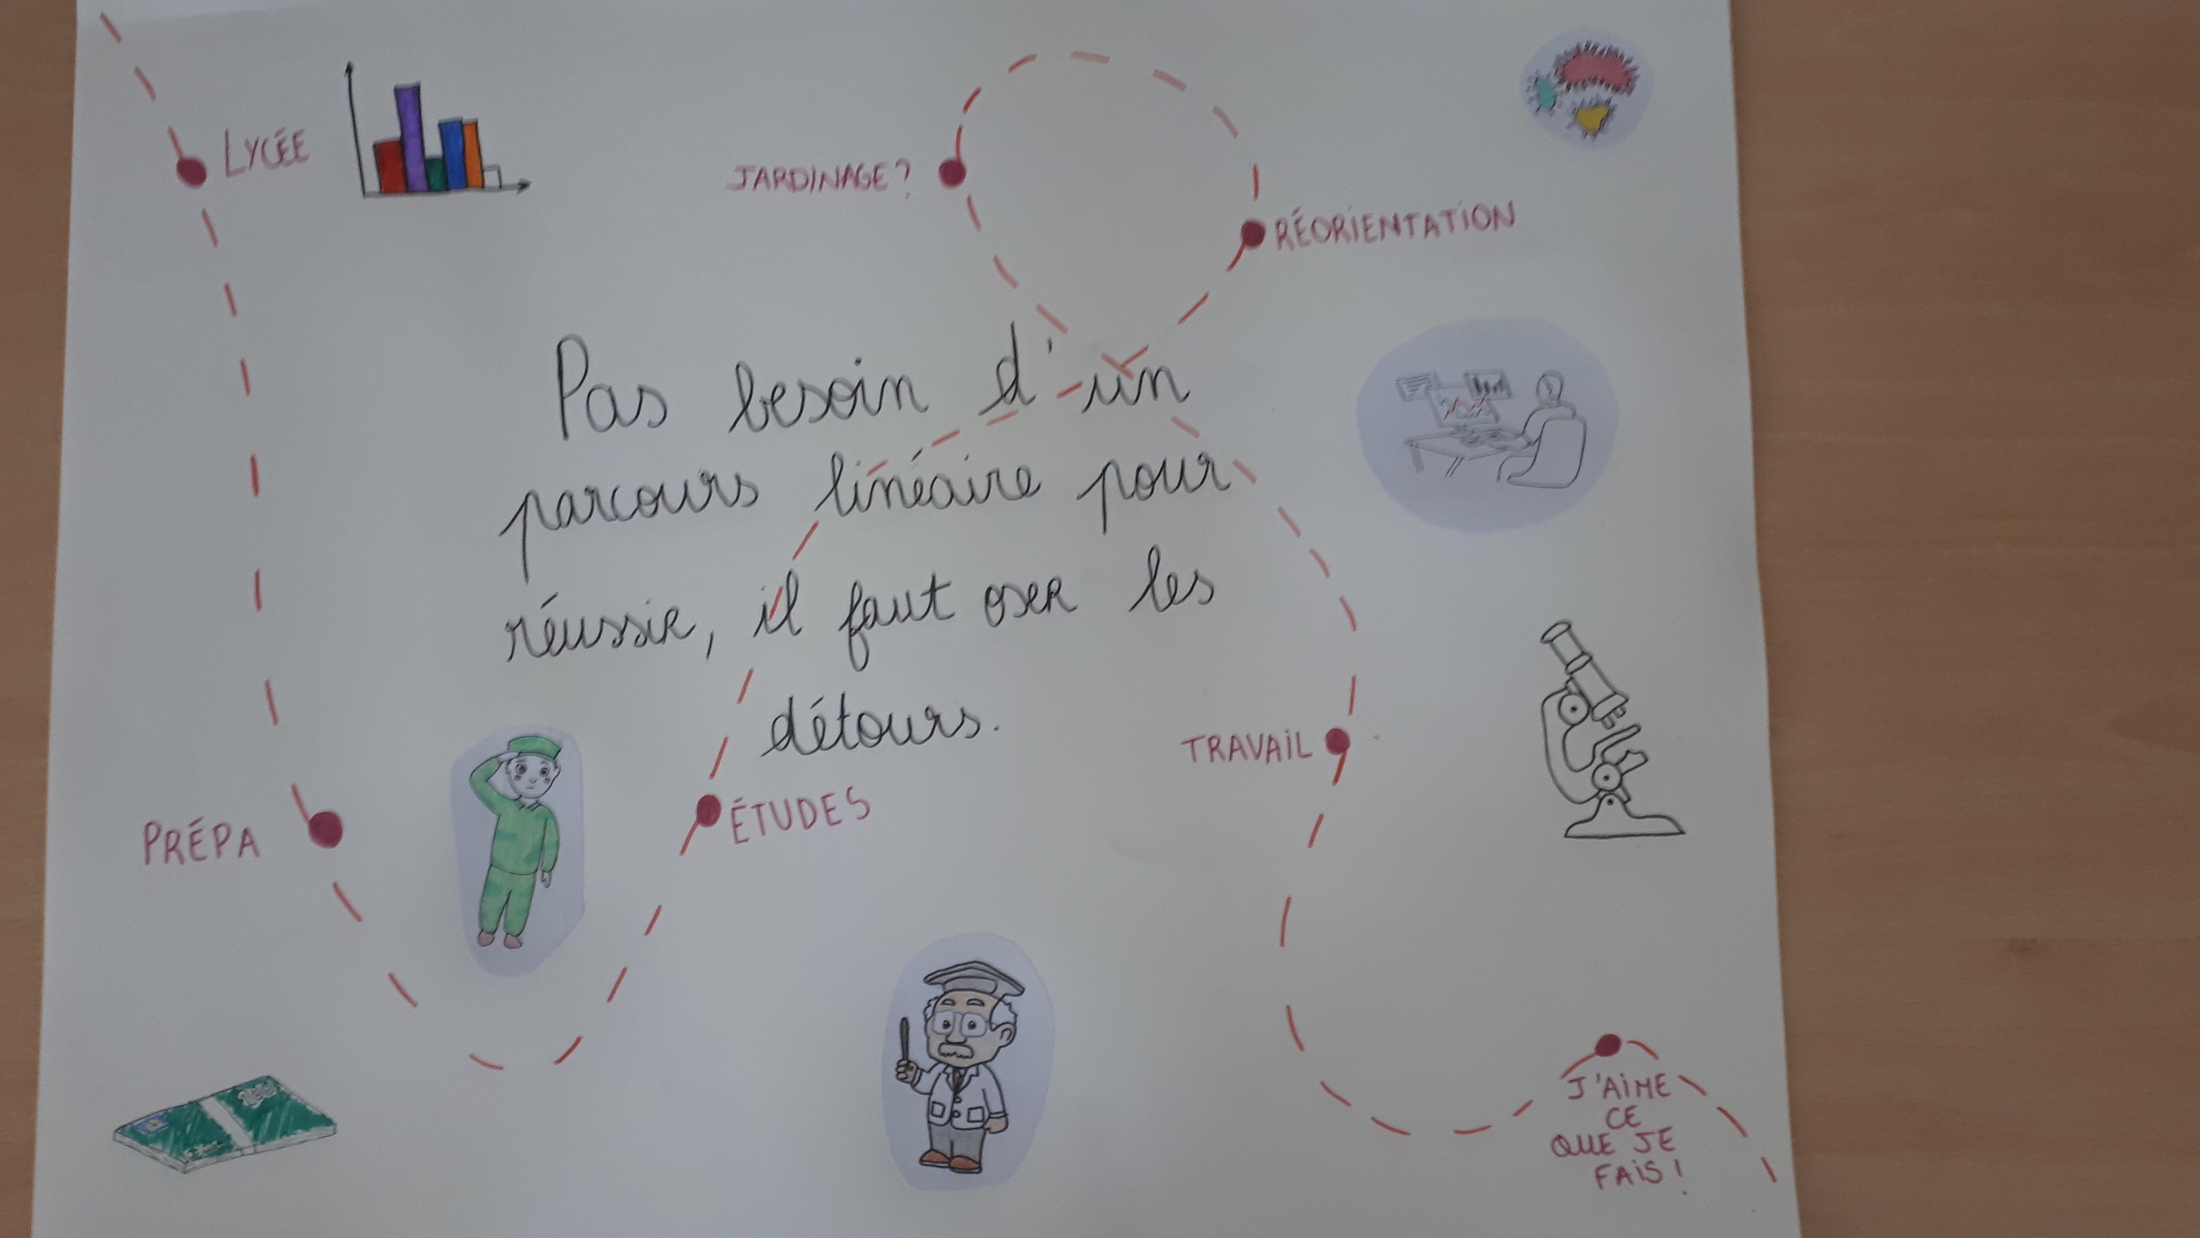 LYCÉE
JARDINAGE?
RÉORIENTATION
Pas besoin d'un
parcours linéaire pour
réussir, il faut oser les
détours.
TRAVAIL
PRÉPA
ÉTUDES
J'AIME
CE
QUE JE
FAIS!